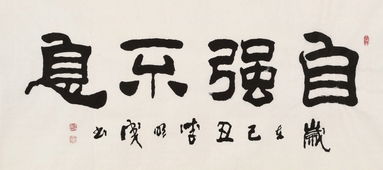 自强不息
歲在己丑李明成书